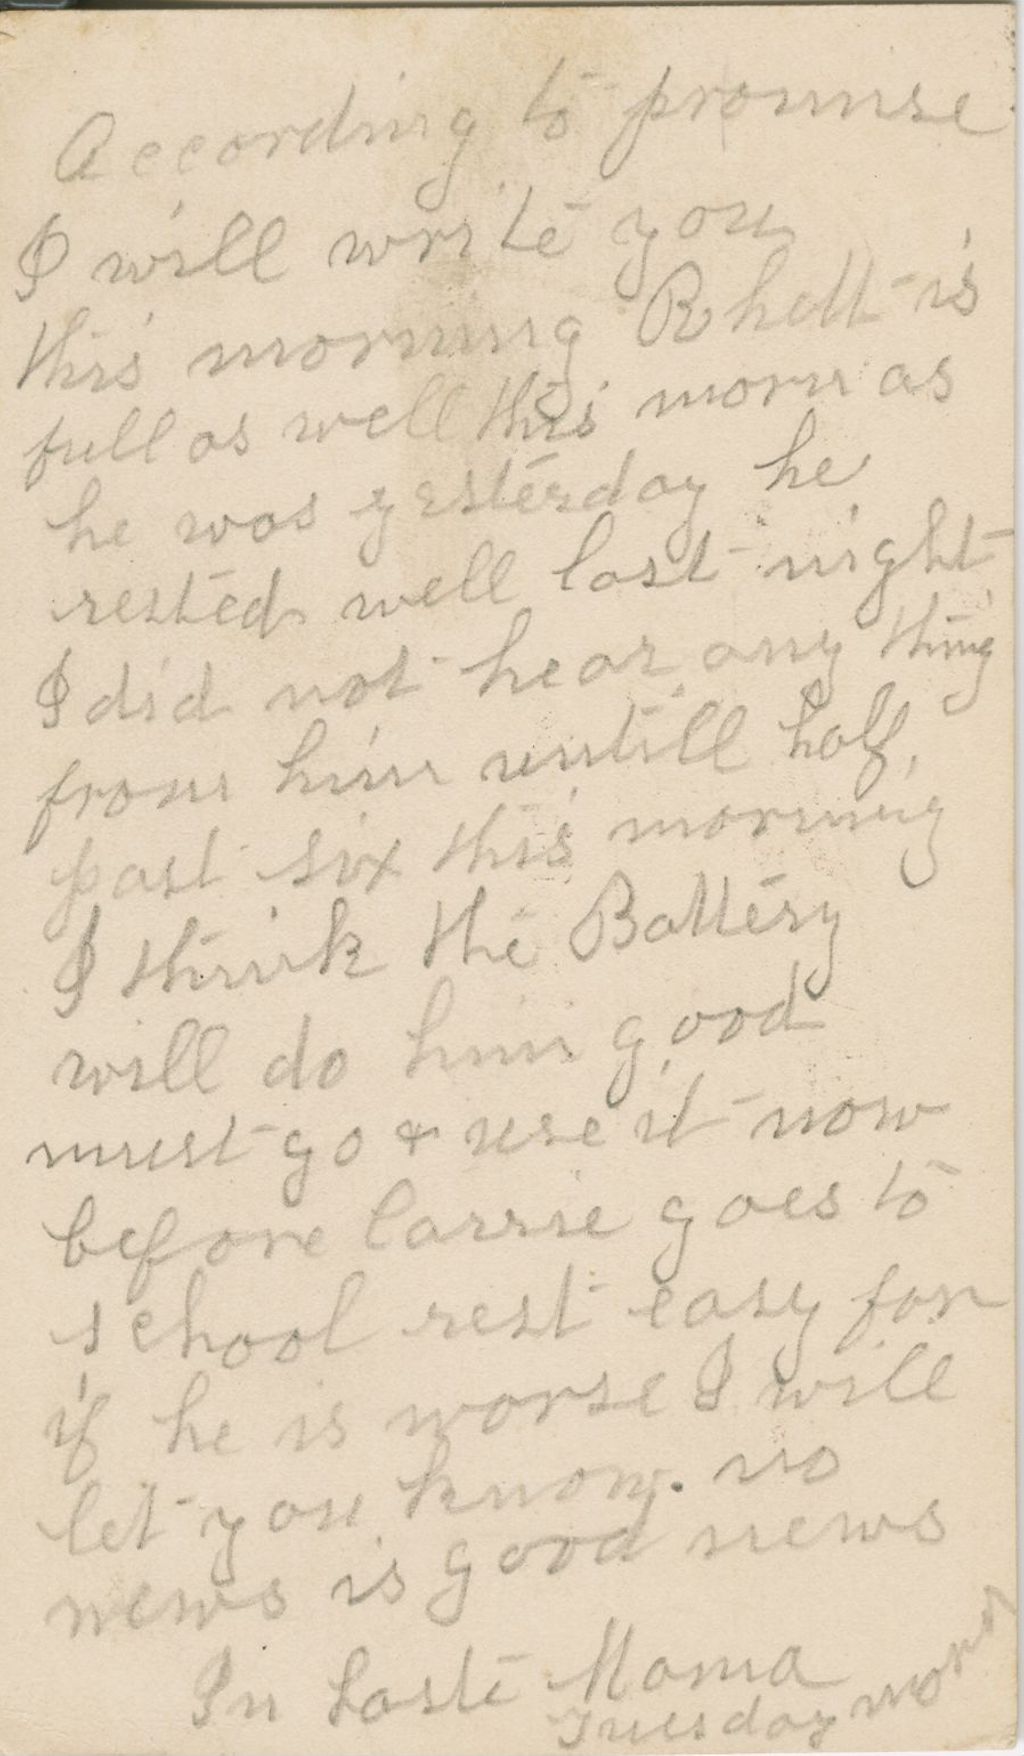 According to promise
I will write you
this morning Rhett is
full as well this morn as
he was yesterday he
rested well last night
I did not hear any thing
from him untill half
past six this morning
I think the Battery
will do him good
must go & use it now
before Carrie goes to
school rest easy for
if he is worse I will
let you know. no
news is good news
In haste Mama
Tuesday morn